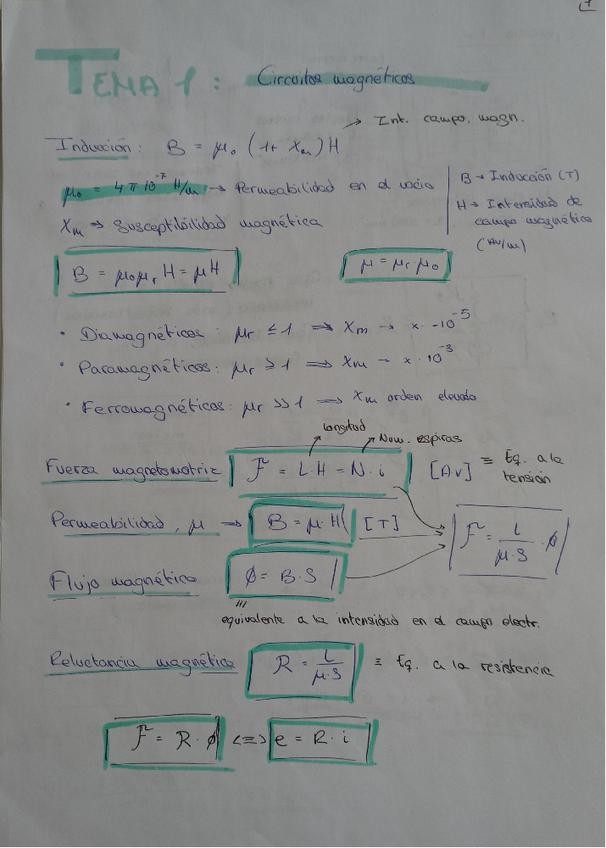 1
TEMA 1: Circuitos magnéticos
→ Int. campo. magn.
Inducción: B = μ₀ (1 + Xm) H
μ₀ = 4π10⁻⁷ H/m → Permeabilidad en el vacío
B → Inducción (T)
H → Intensidad de
campo magnético
(Av/m)
Xm → Susceptibilidad magnética
B = μ₀μᵣH = μH
μ = μᵣ·μ₀
• Diamagnéticos: μr ≤ 1 ⇒ Xm → x · -10⁻⁵
• Paramagnéticos: μr ≥ 1 ⇒ Xm → x · 10⁻³
• Ferromagnéticos: μr >> 1 ⇒ Xm orden elevado
longitud
Num. espiras
Fuerza magnetomotriz F = L·H = N·i [Av] ≡ Eq. a la
tensión
Permeabilidad, μ → B = μ·H [T]
F = L/μ·S · ϕ
Flujo magnético ϕ = B·S
equivalente a la intensidad en el campo electr.
Reluctancia magnética R = L/μ·S ≡ Eq. a la resistencia
F = R·ϕ <=> e = R·i